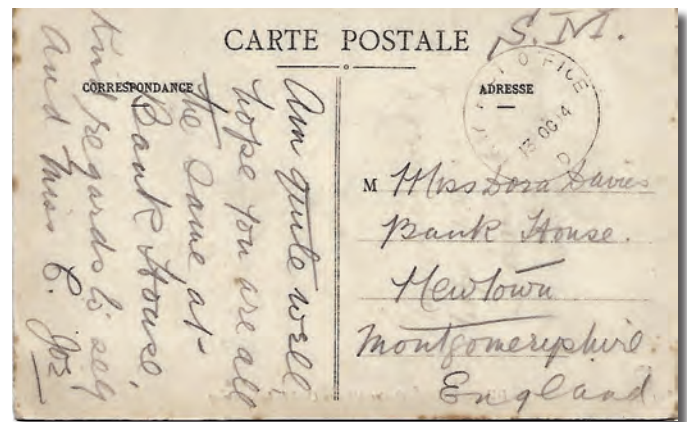 CARTE POSTALE
S.M.
CORRESPONDANCE
ADRESSE
OFFICE
13 OC 14
Am quite well
hope you are all
the same at
Bank House,
Kind regards to self
And Miss C. Jos
M Miss Dora Davies
Bank House.
Newtown
Montgomeryshire
England.